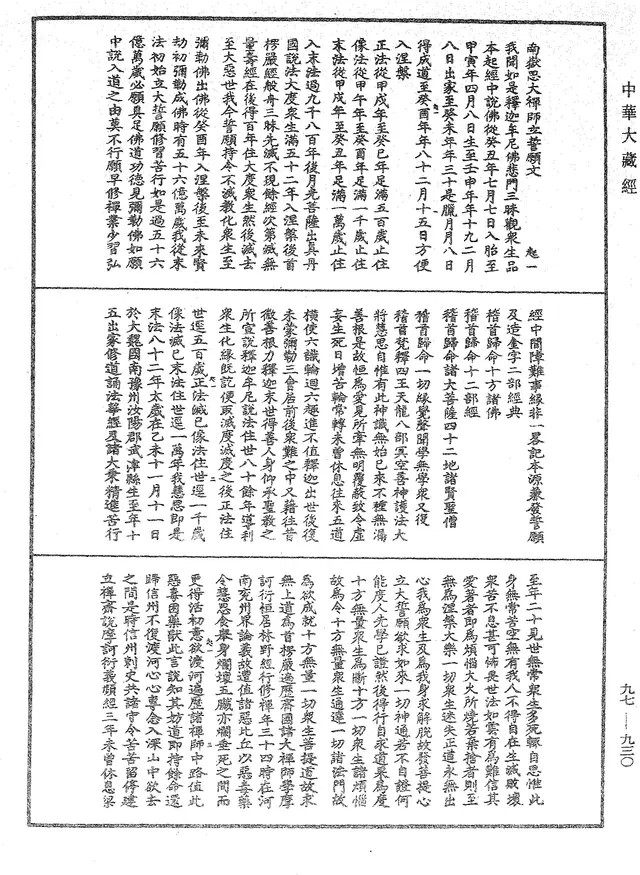 中華大藏經
南嶽思大禪師立誓願文　起一
我聞如是釋迦牟尼佛悲門三昧觀衆生品
本起經中說佛從癸丑年七月七日入胎至
甲寅年四月八日生至壬申年年十九二月
八日出家至癸未年年三十是臘月月八日
得成道至癸酉年年八十二月十五日方便
入涅槃
正法從甲戌年至癸巳年足滿五百歲止住
像法從甲午年至癸酉年足滿一千歲止住
末法從甲戌年至癸丑年足滿一萬歲止住
入末法過九千八百年後月光菩薩出真丹
國說法大度衆生滿五十二年入涅槃後首
楞嚴經般舟三昧先滅不現餘經次第滅無
量壽經在後得百年住大度衆生然後滅去
至大惡世我今誓願持令不滅教化衆生至
彌勒佛出佛從癸酉年入涅槃後至未來賢
劫初彌勒成佛時有五十六億萬歲我從末
法初始立大誓願修習苦行如是過五十六
億萬歲必願具足佛道功德見彌勒佛如願
中說入道之由莫不行願早修禪業少習弘
經中間障難事緣非一畧記本源兼發誓願
及造金字二部經典
稽首歸命十方諸佛
稽首歸命十二部經
稽首歸命諸大菩薩四十二地諸賢聖僧
稽首歸命一切緣覺聲聞學無學衆又復
稽首梵釋四王天龍八部冥空善神護法大
將慧思自惟有此神識無始已來不種無漏
善根是故恒爲愛見所牽無明覆蔽致令虛
妄生死日增苦輪常轉未曾休息往來五道
橫使六識輪迴六趣進不值釋迦出世後復
未蒙彌勒三會居前後衆難之中又藉往昔
微善根力釋迦末世得善人身仰承聖教之
所宣說釋迦牟尼說法住世八十餘年導利
衆生化緣既訖便取滅度滅度之後正法住
世逕五百歲正法滅已像法住世逕一千歲
像法滅已末法住世逕一萬年我慧思即是
末法八十二年太歲在乙未十一月十一日
於大魏國南豫州汝陽郡武津縣生至年十
五出家修道誦法華經及諸大乘精進苦行
至年二十見世無常衆生多死輒自思惟此
身無常苦空無有我人不得自在生滅敗壞
衆苦不息甚可怖畏世法如雲有爲難信其
愛著者即爲煩惱大火所燒若棄捨者則至
無爲涅槃大樂一切衆生迷失正道永無出
心我爲衆生及爲我身求解脫故發菩提心
立大誓願欲求如來一切神通若不自證何
能度人先學已證然後得行自求道果爲度
十方無量衆生爲斷十方一切衆生諸煩惱
故爲令十方無量衆生通達一切諸法門故
爲欲成就十方無量一切衆生菩提道故求
無上道爲首楞嚴遍歷齊國諸大禪師學摩
訶衍恒居林野經行修禪年三十四時在河
南兖州界論義故遭值諸惡比丘以惡毒藥
令慧思食舉身爛壞五臟亦爛垂死之間而
更得活初意欲渡河遍歷諸禪師中路值此
惡毒困藥厭此言說知其妨道即持餘命還
歸信州不復渡河心心專念入深山中欲去
之間是時信州刺史共諸守令苦苦留停建
立禪齋說摩訶衍義頻經三年未曾休息梁
九七—九三〇